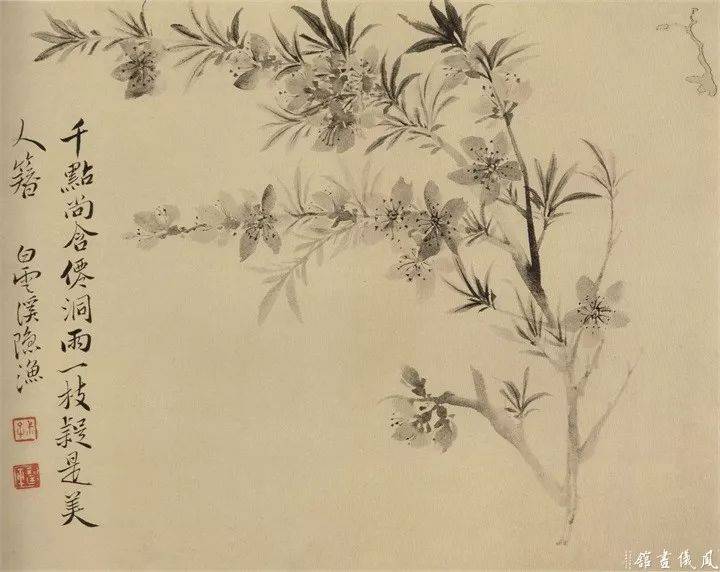 千點尚含僊洞雨一枝疑是美
人簪 白雲溪隐漁
鳳儀畫館